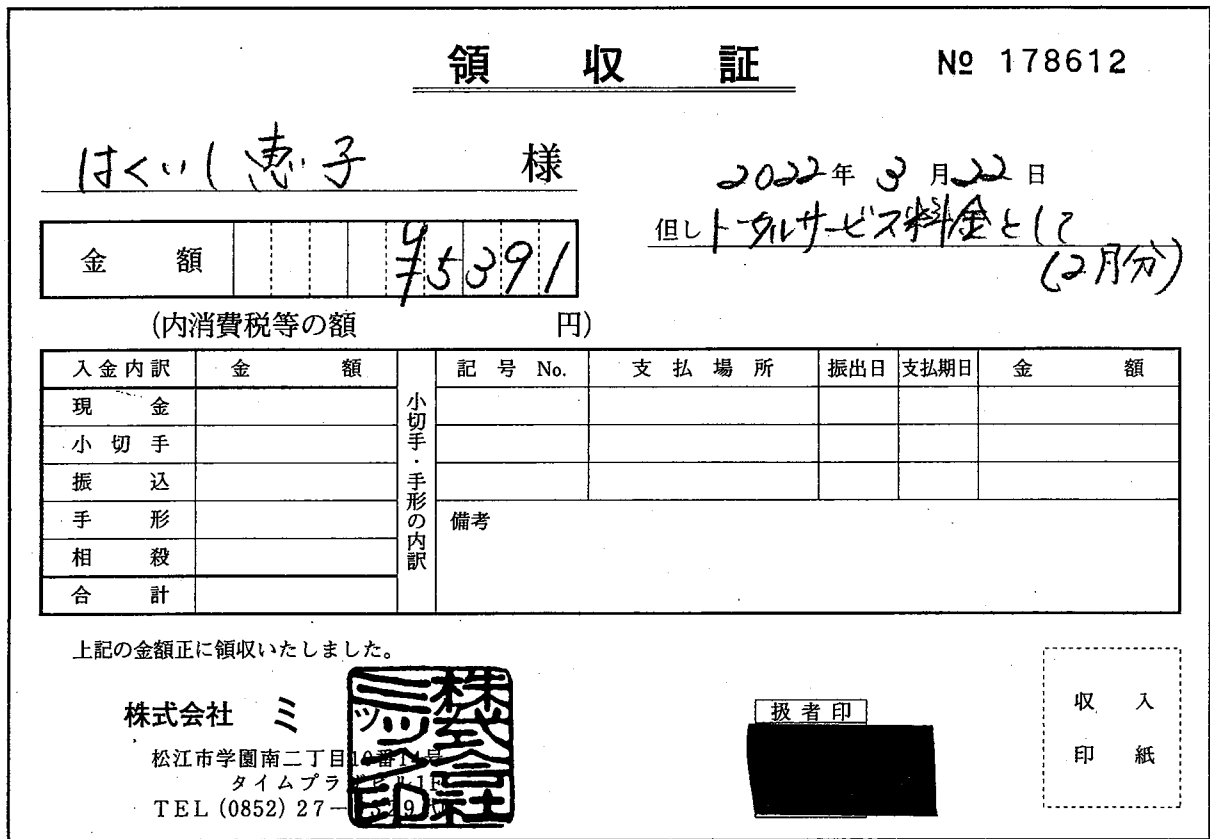 領収証
№ 178612
はくいし恵子 様
2022年3月22日
但しトータルサービス料金として
(2月分)
金額 ¥5391
(内消費税等の額 円)
入金内訳 金額
現金
小切手
振込
手形
相殺
合計
小切手・手形の内訳
記号No. 支払場所 振出日 支払期日 金額
備考
上記の金額正に領収いたしました。
株式会社 ミ
松江市学園南二丁目10番14号
タイムプラザビル1F
TEL (0852) 27-
扱者印
収入
印紙